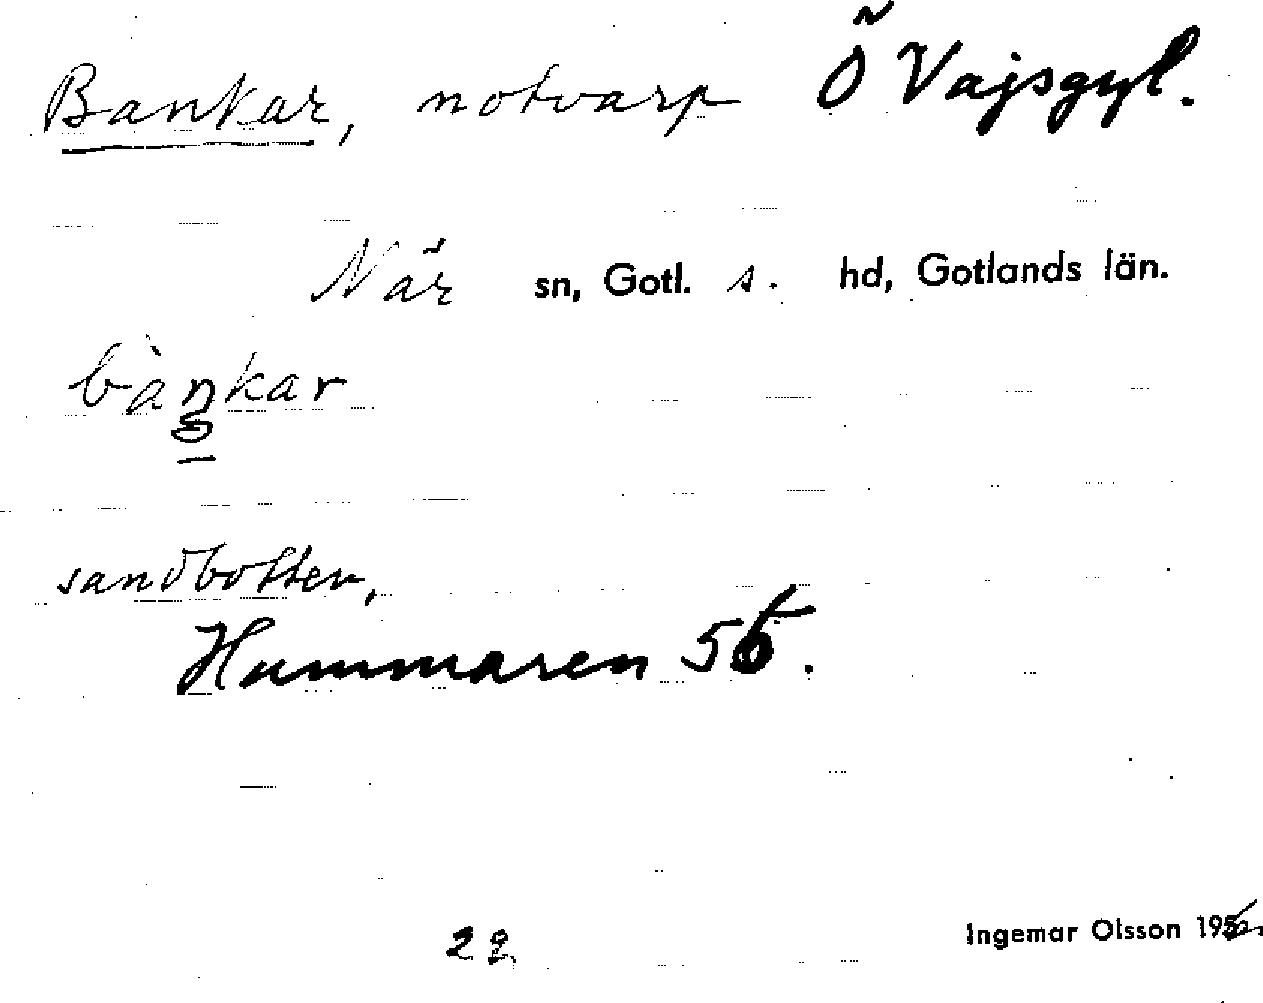 Bankar, notvarp Ö Vajsgyl.
När sn, Gotl. s. hd, Gotlands län.
bànkar
sandbotten,
Hummaren 56.
22
Ingemar Olsson 195